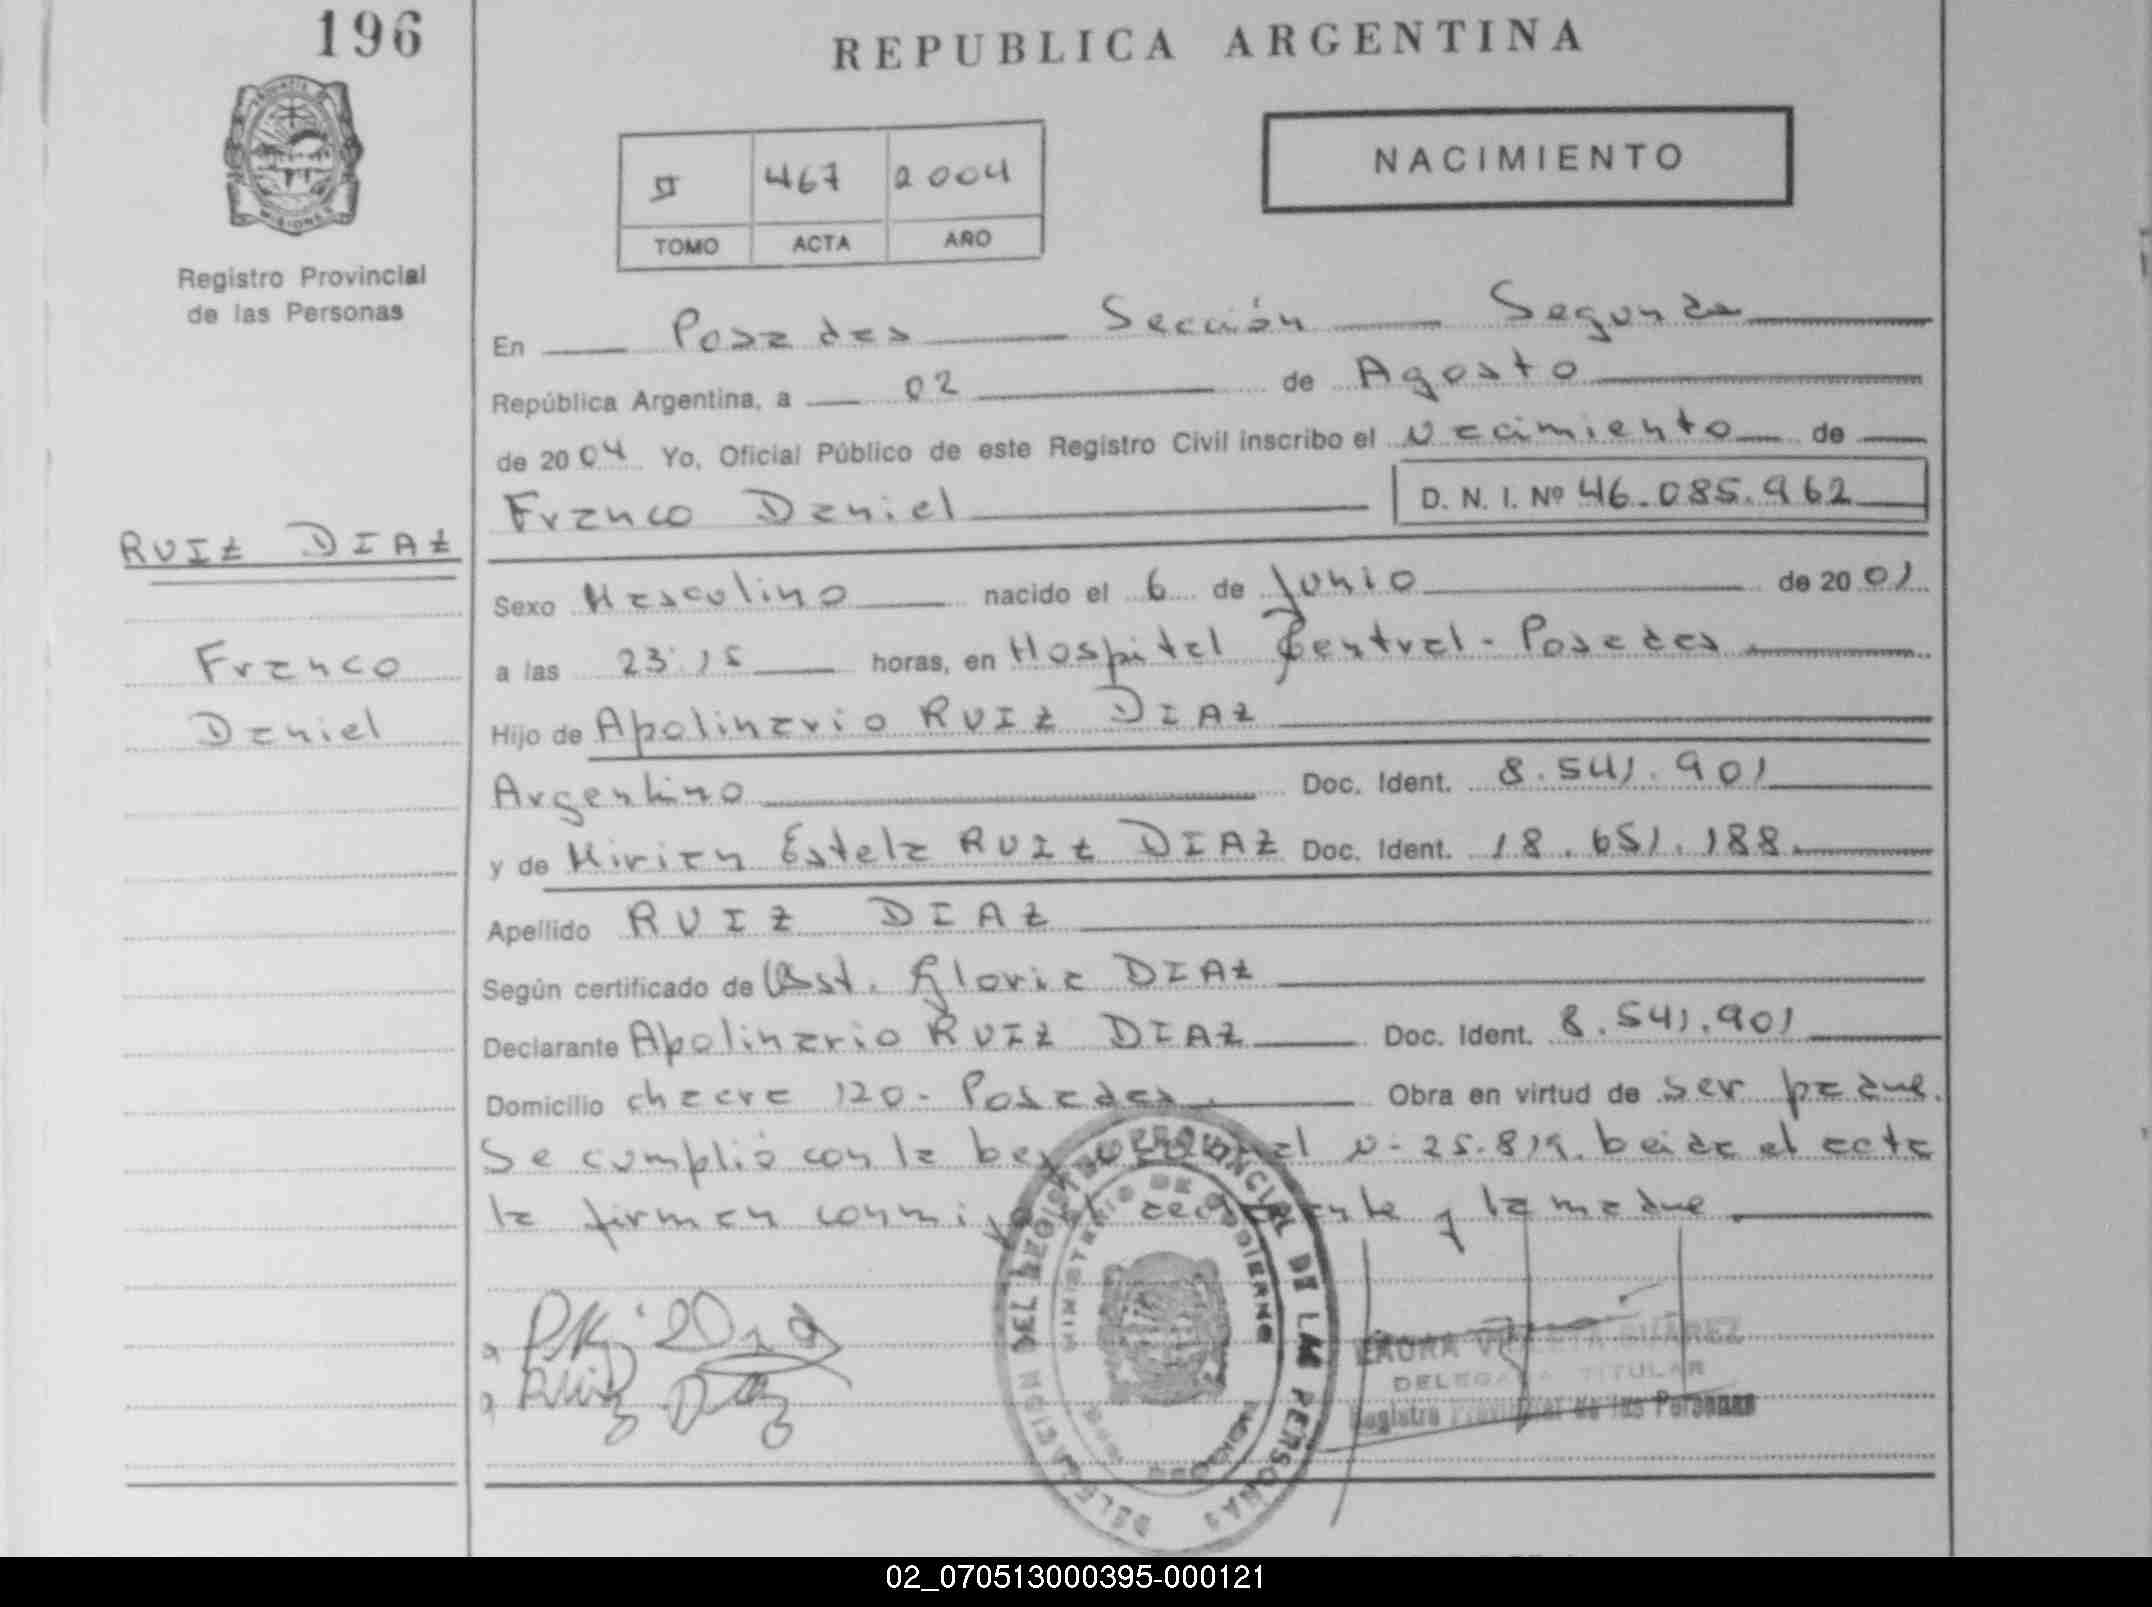 196
REPUBLICA ARGENTINA
NACIMIENTO
II 467 2004
TOMO ACTA AÑO
Registro Provincial
de las Personas
En Posadas Sección Segunda
República Argentina, a 02 de Agosto
de 2004 Yo, Oficial Público de este Registro Civil inscribo el Nacimiento de
Franco Daniel D. N. I. Nº 46.085.962
RUIZ DIAZ
Franco
Daniel
Sexo Masculino nacido el 6 de Junio de 2001
a las 23:15 horas, en Hospital Central - Posadas
Hijo de Apolinario RUIZ DIAZ
Argentino Doc. Ident. 8.541.901
y de Mirian Estela RUIZ DIAZ Doc. Ident. 18.651.188.
Apellido RUIZ DIAZ
Según certificado de Obst. Gloria DIAZ
Declarante Apolinario RUIZ DIAZ Doc. Ident. 8.541.901
Domicilio chacra 120 - Posadas. Obra en virtud de ser padre.
Se cumplió con la Ley N- 25.819. Leida el acta
la firman conmigo el declarante y la madre.
Ruiz Diaz
DELEGACION DEL REGISTRO PROVINCIAL DE LAS PERSONAS
MINISTERIO DE GOBIERNO
LAURA VIOLETA SUAREZ
DELEGADA TITULAR
Registro Provincial de las Personas
02_070513000395-000121